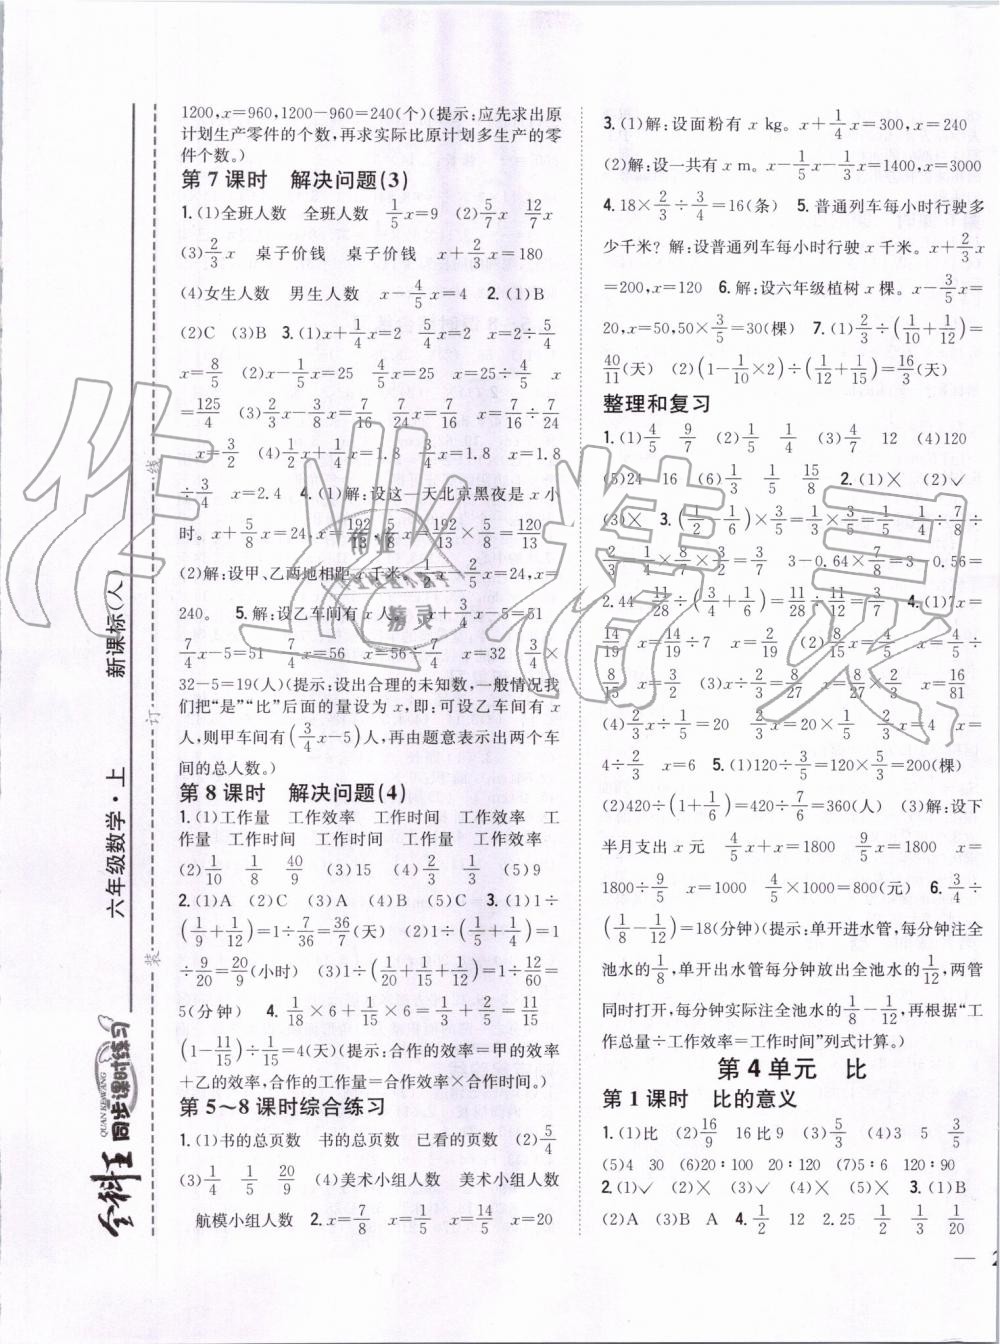 1200,x=960,1200-960=240(个)(提示:应先求出原
计划生产零件的个数,再求实际比原计划多生产的零
件个数。)
第 7 课时 解决问题(3)
1.(1)全班人数 全班人数 1/5x=9 (2)5/7x 12/7x
(3)2/3x 桌子价钱 桌子价钱 x+2/3x=180
(4)女生人数 男生人数 x-4/5x=4 2.(1)B
(2)C (3)B 3.(1)x+1/4x=2 5/4x=2 x=2÷5/4
x=8/5 (2)x-1/5x=25 4/5x=25 x=25÷4/5 x
=125/4 (3)2/3x-3/8x=7/16 7/24x=7/16 x=7/16÷7/24
x=3/2 (4)1/2x+1/4x=1.8 3/4x=1.8 x=1.8
÷3/4 x=2.4 4.(1)解:设这一天北京黑夜是 x 小
时。x+5/8x=24,x=192/13 192/13×5/8=120/13
(2)解:设甲、乙两地相距 x 千米。1/2x-2/5x=24,x=
240。 5.解:设乙车间有 x 人。x+3/4x-5=51
7/4x-5=51 7/4x=56 x=56÷7/4 x=32 3/4×
32-5=19(人)(提示:设出合理的未知数,一般情况我
们把“是”“比”后面的量设为 x,即:可设乙车间有 x
人,则甲车间有(3/4x-5)人,再由题意表示出两个车
间的总人数。)
第 8 课时 解决问题(4)
1.(1)工作量 工作效率 工作时间 工作效率 工
作量 工作时间 工作时间 工作量 工作效率
(2)1/10 1/8 40/9 (3)15 (4)2/3 1/3 (5)9
2.(1)A (2)C (3)A (4)B (5)C 3.(1)1÷
(1/9+1/12)=1÷7/36=36/7(天) (2)1÷(1/5+1/4)=1
÷9/20=20/9(小时) (3)1÷(1/20+1/15+1/12)=1÷12/60=
5(分钟) 4.1/18×6+1/15×6=1/3+2/5=11/15
(1-11/15)÷1/15=4(天)(提示:合作的效率=甲的效率
+乙的效率,合作的工作量=合作效率×合作时间。)
第 5~8 课时综合练习
1.(1)书的总页数 书的总页数 已看的页数 (2)5/4
(3)1/4 1/5 20/9 (4)美术小组人数 美术小组人数
航模小组人数 2.x=7/8 x=1/5 x=14/5 x=20
3.(1)解:设面粉有 x kg。x+1/4x=300,x=240
(2)解:设一共有 x m。x-1/5x-1/3x=1400,x=3000
4.18×2/3÷3/4=16(条) 5.普通列车每小时行驶多
少千米? 解:设普通列车每小时行驶 x 千米。x+2/3x
=200,x=120 6.解:设六年级植树 x 棵。x-3/5x=
20,x=50,50×3/5=30(棵) 7.(1)2/3÷(1/10+1/12)=
40/11(天) (2)(1-1/10×2)÷(1/12+1/15)=16/3(天)
整理和复习
1.(1)4/5 9/7 (2)1/5 1/4 (3)4/7 12 (4)120
(5)24 16 (6)1/3 1/5 15/8 2.(1)× (2)√
(3)× 3.(1/2-1/6)×3/5=1/3×3/5=1/5 1/4÷7/8÷
2/3=1/4×8/7×3/2=3/7 3-0.64×7/8=3-0.56=
2.44 11/28÷(3/4+1/6)=11/28÷11/12=3/7 4.(1)7x=
14/19 x=14/19÷7 x=2/19 (2)8/15x=4/5 x=4/5÷
8/15 x=3/2 (3)x÷2/3=8/27 x=8/27×2/3 x=16/81
(4)2/3x÷1/5=20 2/3x=20×1/5 2/3x=4 x=
4÷2/3 x=6 5.(1)120÷3/5=120×5/3=200(棵)
(2)420÷(1+1/6)=420÷7/6=360(人) (3)解:设下
半月支出 x 元 4/5x+x=1800 9/5x=1800 x=
1800÷9/5 x=1000 4/5×1000=800(元) 6.3/4÷
(1/8-1/12)=18(分钟)(提示:单开进水管,每分钟注全
池水的1/8,单开出水管每分钟放出全池水的1/12,两管
同时打开,每分钟实际注全池水的1/8-1/12,再根据“工
作总量÷工作效率=工作时间”列式计算。)
第 4 单元 比
第 1 课时 比的意义
1.(1)比 (2)16/9 16比9 (3)5/3 (4)3 5 3/5
(5)4 30 (6)20:100 20:120 (7)5:6 120:90
2.(1)√ (2)× (3)× (4)√ (5)× 3.(1)B
(2)A (3)B A 4.1/2 12 2.25 1/2 1/3 1/20
六年级数学·上 新课标(人)
全科王 同步课时练习
QUAN KE WANG
装 订 线
作业精灵
作业
精灵